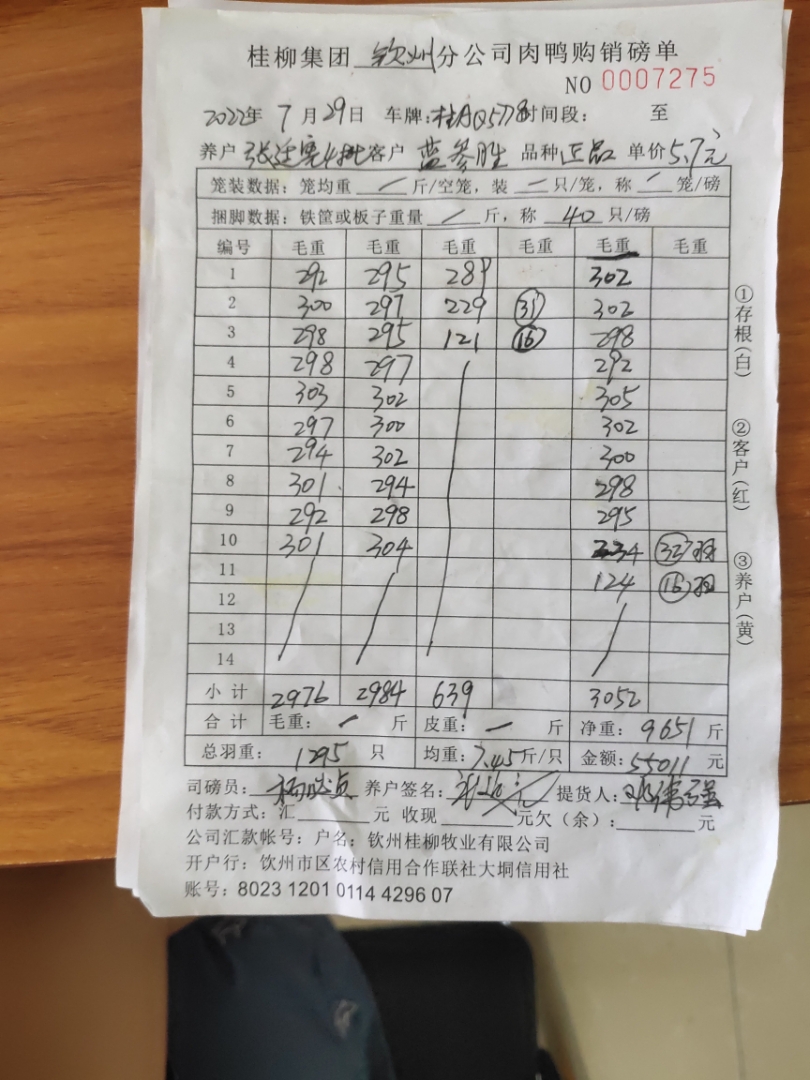 桂柳集团 钦州 分公司肉鸭购销磅单
NO 0007275
2022年 7月29日 车牌:桂AQ5778 时间段: 至
养户 客户 蓝参胜 品种 正品 单价 5.7元
笼装数据:笼均重 / 斤/空笼,装 一 只/笼,称 / 笼/磅
捆脚数据:铁筐或板子重量 / 斤,称 40 只/磅
编号 毛重 毛重 毛重 毛重 毛重 毛重
1 292 295 289 302
2 300 297 229 31 302
3 298 295 121 16 298
4 298 297 292
5 303 302 305
6 297 300 302
7 294 302 300
8 301 294 298
9 292 298 295
10 301 304 234 羽
11 124 16羽
12
13
14
小计 2976 2984 639 3052
合计 毛重: 一 斤 皮重: 一 斤 净重: 9651 斤
总羽重: 1295 只 均重: 7.45斤/只 金额: 55011 元
司磅员: 养户签名: 提货人:
付款方式:汇 元 收现 元欠(余): 元
公司汇款帐号:户名:钦州桂柳牧业有限公司
开户行:钦州市区农村信用合作联社大垌信用社
账号:8023 1201 0114 4296 07
①存根(白)
②客户(红)
③养户(黄)